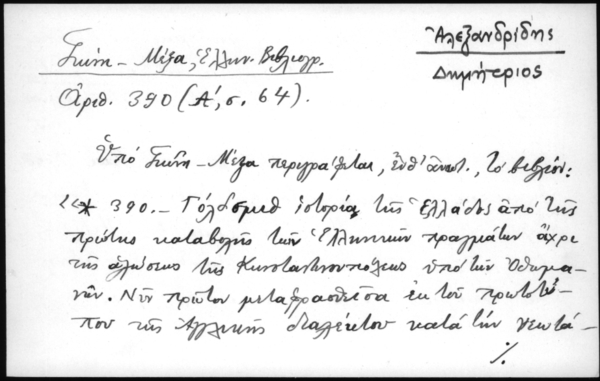 Ἀλεξανδρίδης
Δημήτριος
Γκίνη – Μέξα, Ἑλλην. Βιβλιογρ.
Ἀριθ. 390 (Α', σ. 64).
Ὑπὸ Γκίνη – Μέξα περιγράφεται, ἔνθ' ἀνωτ., τὸ βιβλίον:
«* 390. – Γόλδσμιθ ἱστορία τῆς Ἑλλάδος ἀπὸ τῆς
πρώτης καταβολῆς τῶν Ἑλληνικῶν πραγμάτων ἄχρι
τῆς ἁλώσεως τῆς Κωνσταντινουπόλεως ὑπὸ τῶν Ὀθωμα-
νῶν. Νῦν πρῶτον μεταφρασθεῖσα ἐκ τοῦ πρωτοτύ-
που τῆς Ἀγγλικῆς διαλέκτου κατὰ τὴν νεωτά-
./.